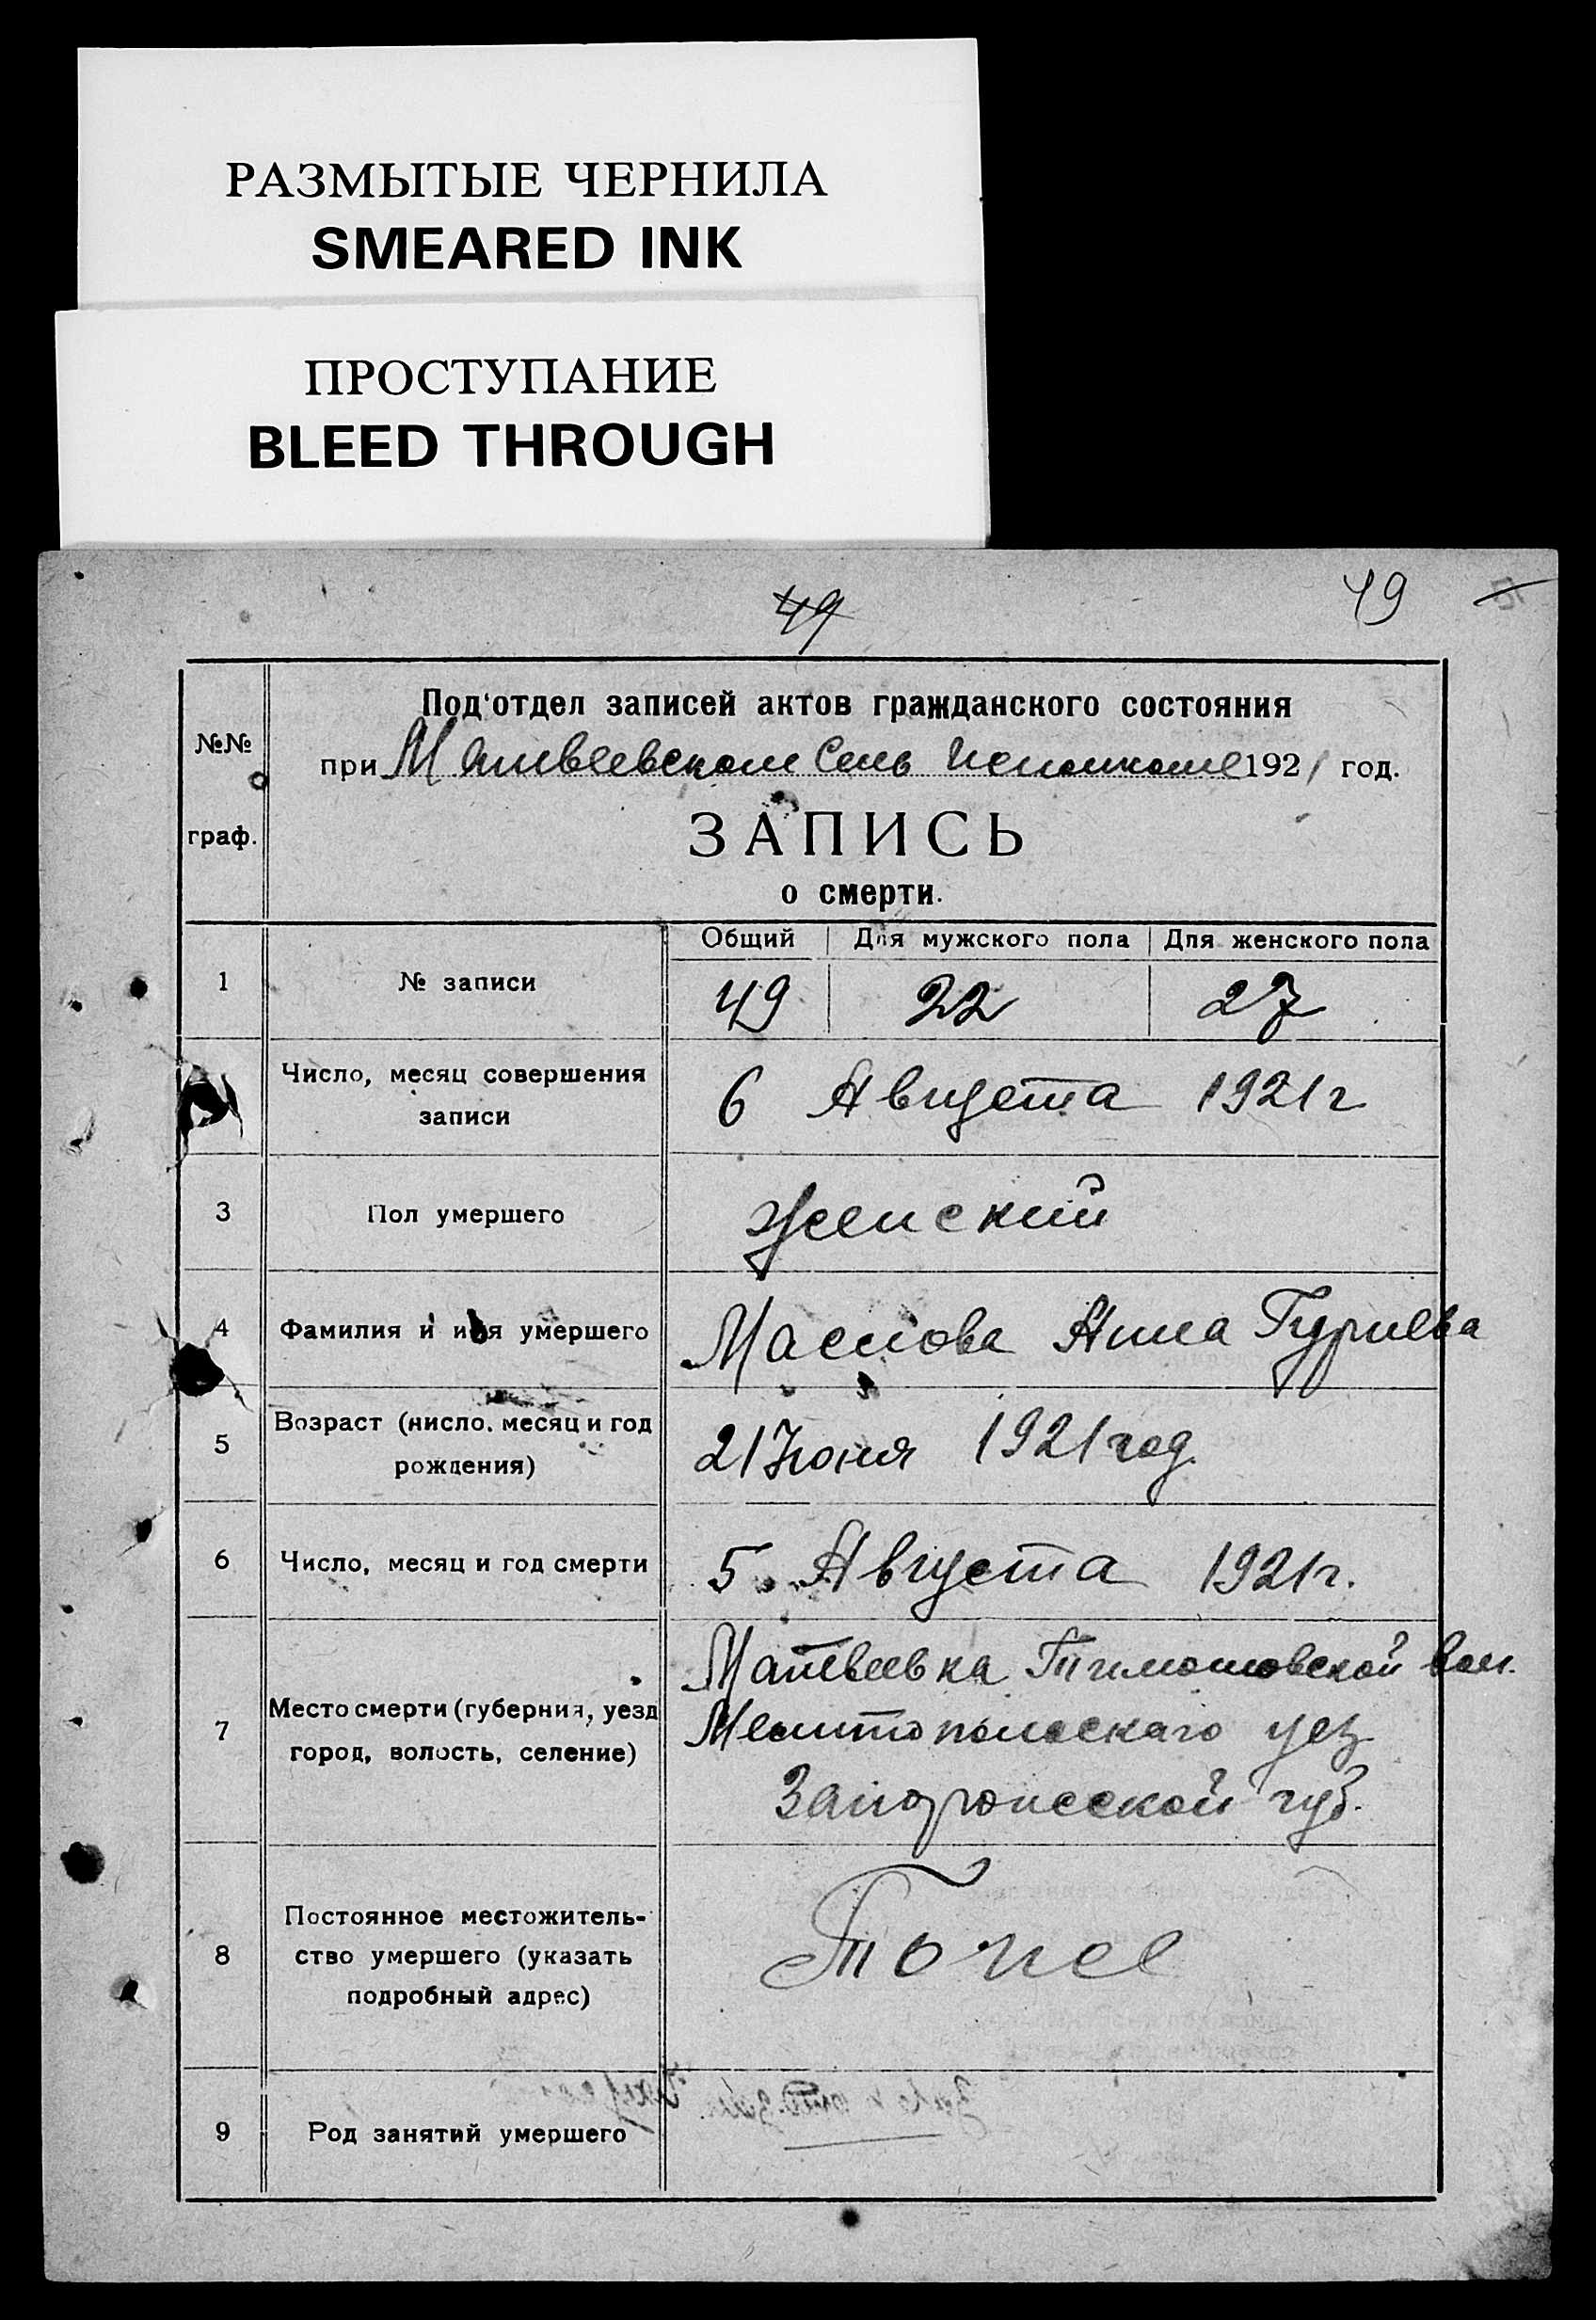 РАЗМЫТЫЕ ЧЕРНИЛА
SMEARED INK
ПРОСТУПАНИЕ
BLEED THROUGH
49 49
Под'отдел записей актов гражданского состояния
№№
при Матвеевском Сель Исполкоме 1921 год.
граф.
ЗАПИСЬ
о смерти.
Общий Для мужского пола Для женского пола
1 № записи 49 22 27
Число, месяц совершения
записи
6 Августа 1921 г
3 Пол умершего Женский
4 Фамилия и имя умершего Маслова Анна Гуриева
5 Возраст (число, месяц и год
рождения)
21 Июня 1921 год.
6 Число, месяц и год смерти 5 Августа 1921 г.
7 Место смерти (губерния, уезд
город, волость, селение)
Матвеевка Тимошовской вол.
Мелитопольскаго уез.
Запорожской губ.
8 Постоянное местожитель-
ство умершего (указать
подробный адрес)
9 Род занятий умершего